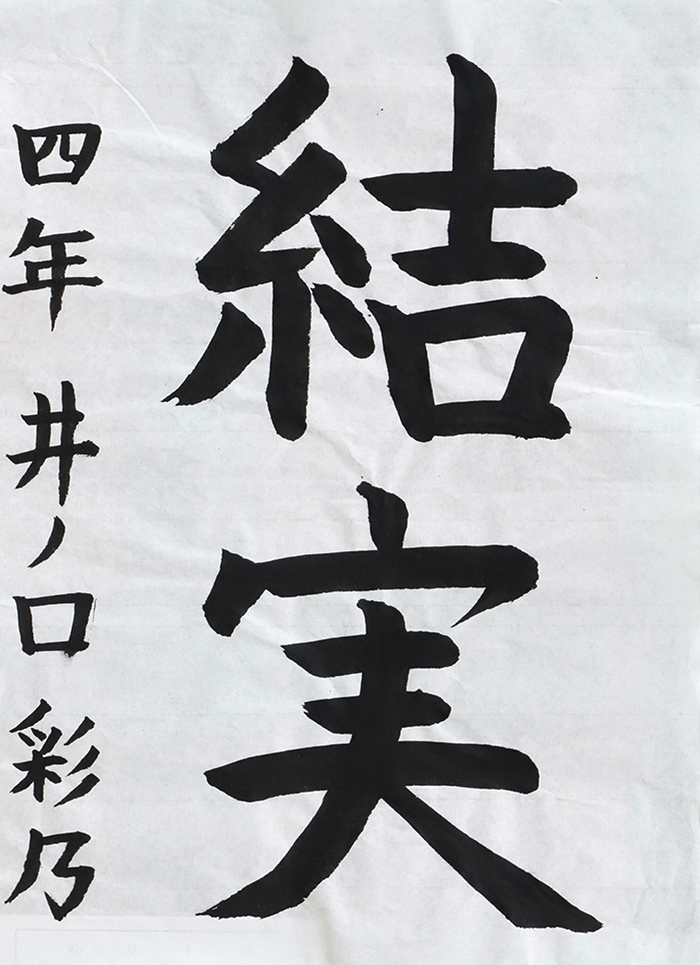 結実
四年 井ノ口 彩乃